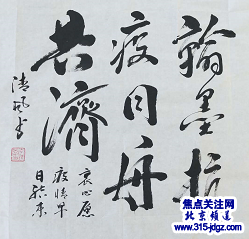 翰墨抗
疫同舟
共濟
衷心愿
疫情早
日结束
清風书
焦点关注网
北京频道
www.315-jdgz.com